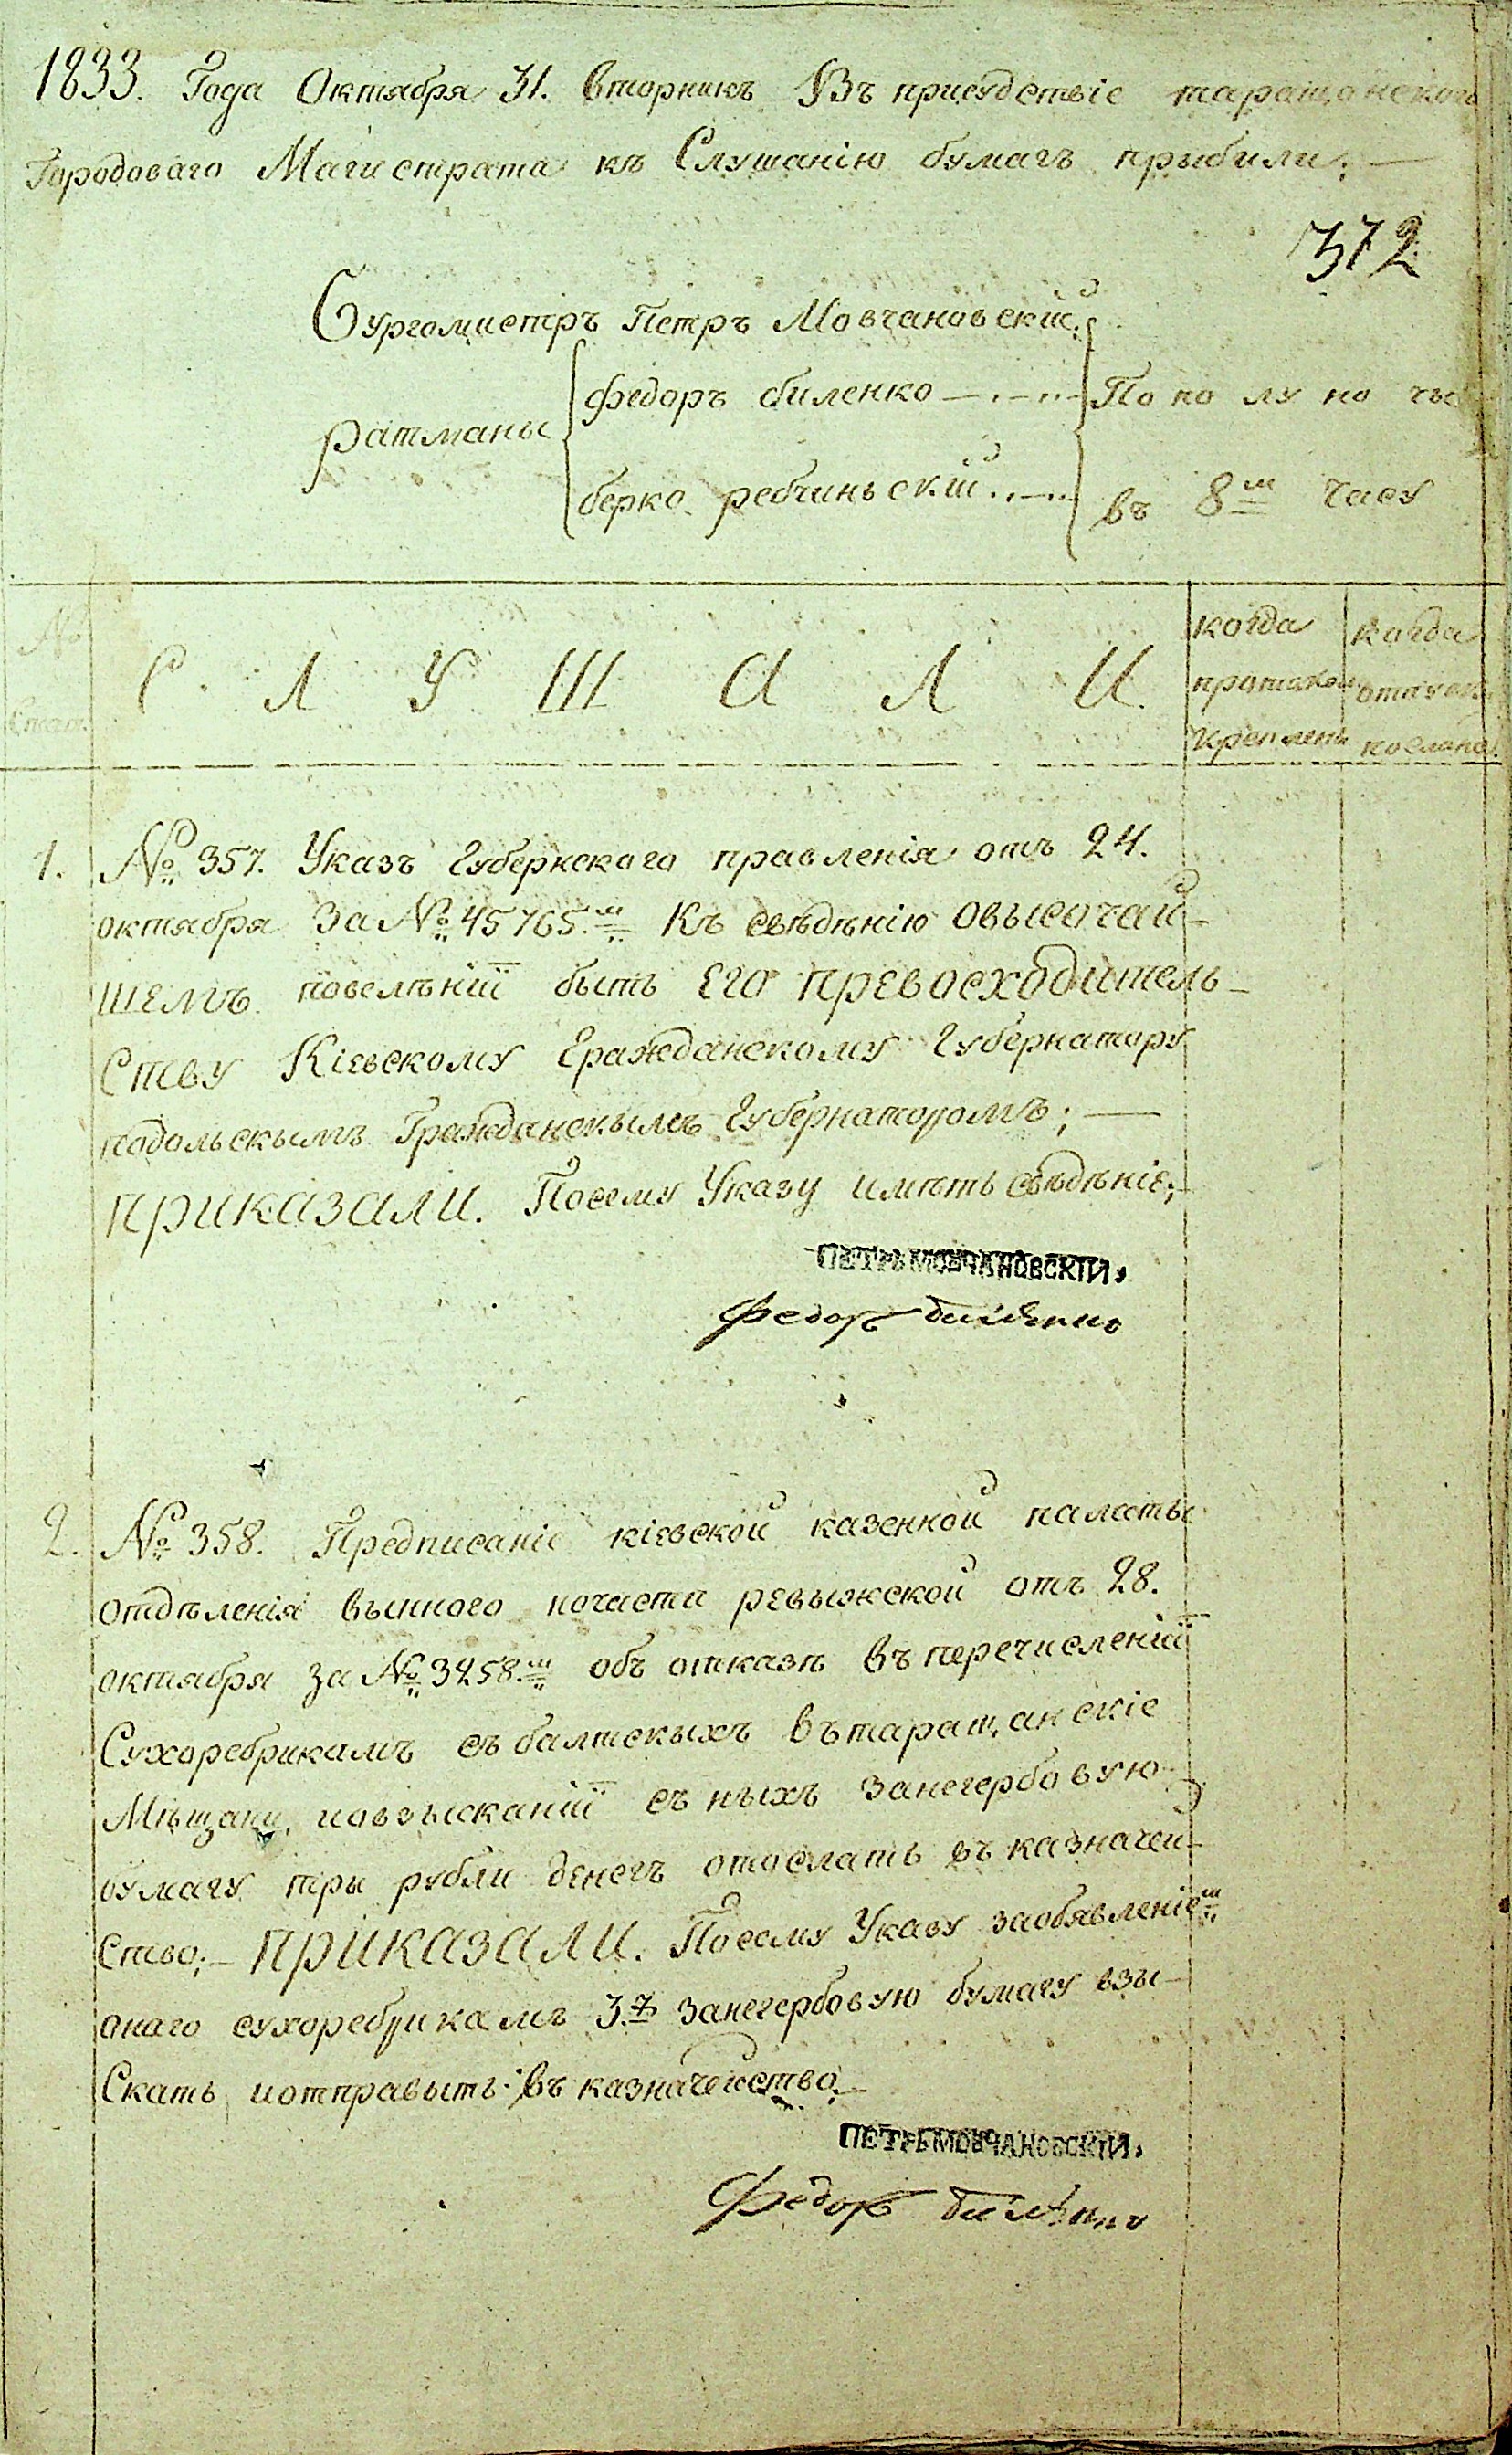 1833. Года Октября 31. Вторникъ Въ присудствіе таращанского
Городоваго Магистрата къ Слушанію бумагъ прыбили;
372
Бургомистръ Петръ Мовчановскій.
ратманы
федоръ биленко
По по лу но чы
берко ребчиньскій
въ 8м часу
№
Стат.
С Л У Ш А Л И.
когда протокол укреплен
когда отпуск послано
1. № 357. Указъ Губернского правленія отъ 24.
октября за № 45765.м Къ свѣдѣнію Овысочай-
шемъ повелѣніи быть Его превосходитель-
Ству Кіевскому Гражданскому Губернатору
подольскымъ Гражданскымъ Губернаторомъ;
приказали. Посему Указу имѣть свѣдѣніе;
ПЕТРЬ МОВЧАНОВСКІЙ,
Федоръ билѣнко
2. № 358. Предписаніе кіевской казенной палаты
отдѣленія вынного почасти ревыжской отъ 28.
октября за № 3258.м объ отказѣ въ перечисленіи
Сухоребрикамъ съ балтскыхъ вътаращанскіе
Мѣщани, иовзысканіи съ ныхъ занегербовую
бумагу три рубли денегъ отослать въ казначей-
Ство; приказали. Посему Указу заобявленіем
онаго сухоребрикамъ 3.р занегербовую бумагу взы-
Скать иотправыть въ казначейство.
ПЕТРЬ МОВЧАНОВСКІЙ,
Федоръ билѣнко